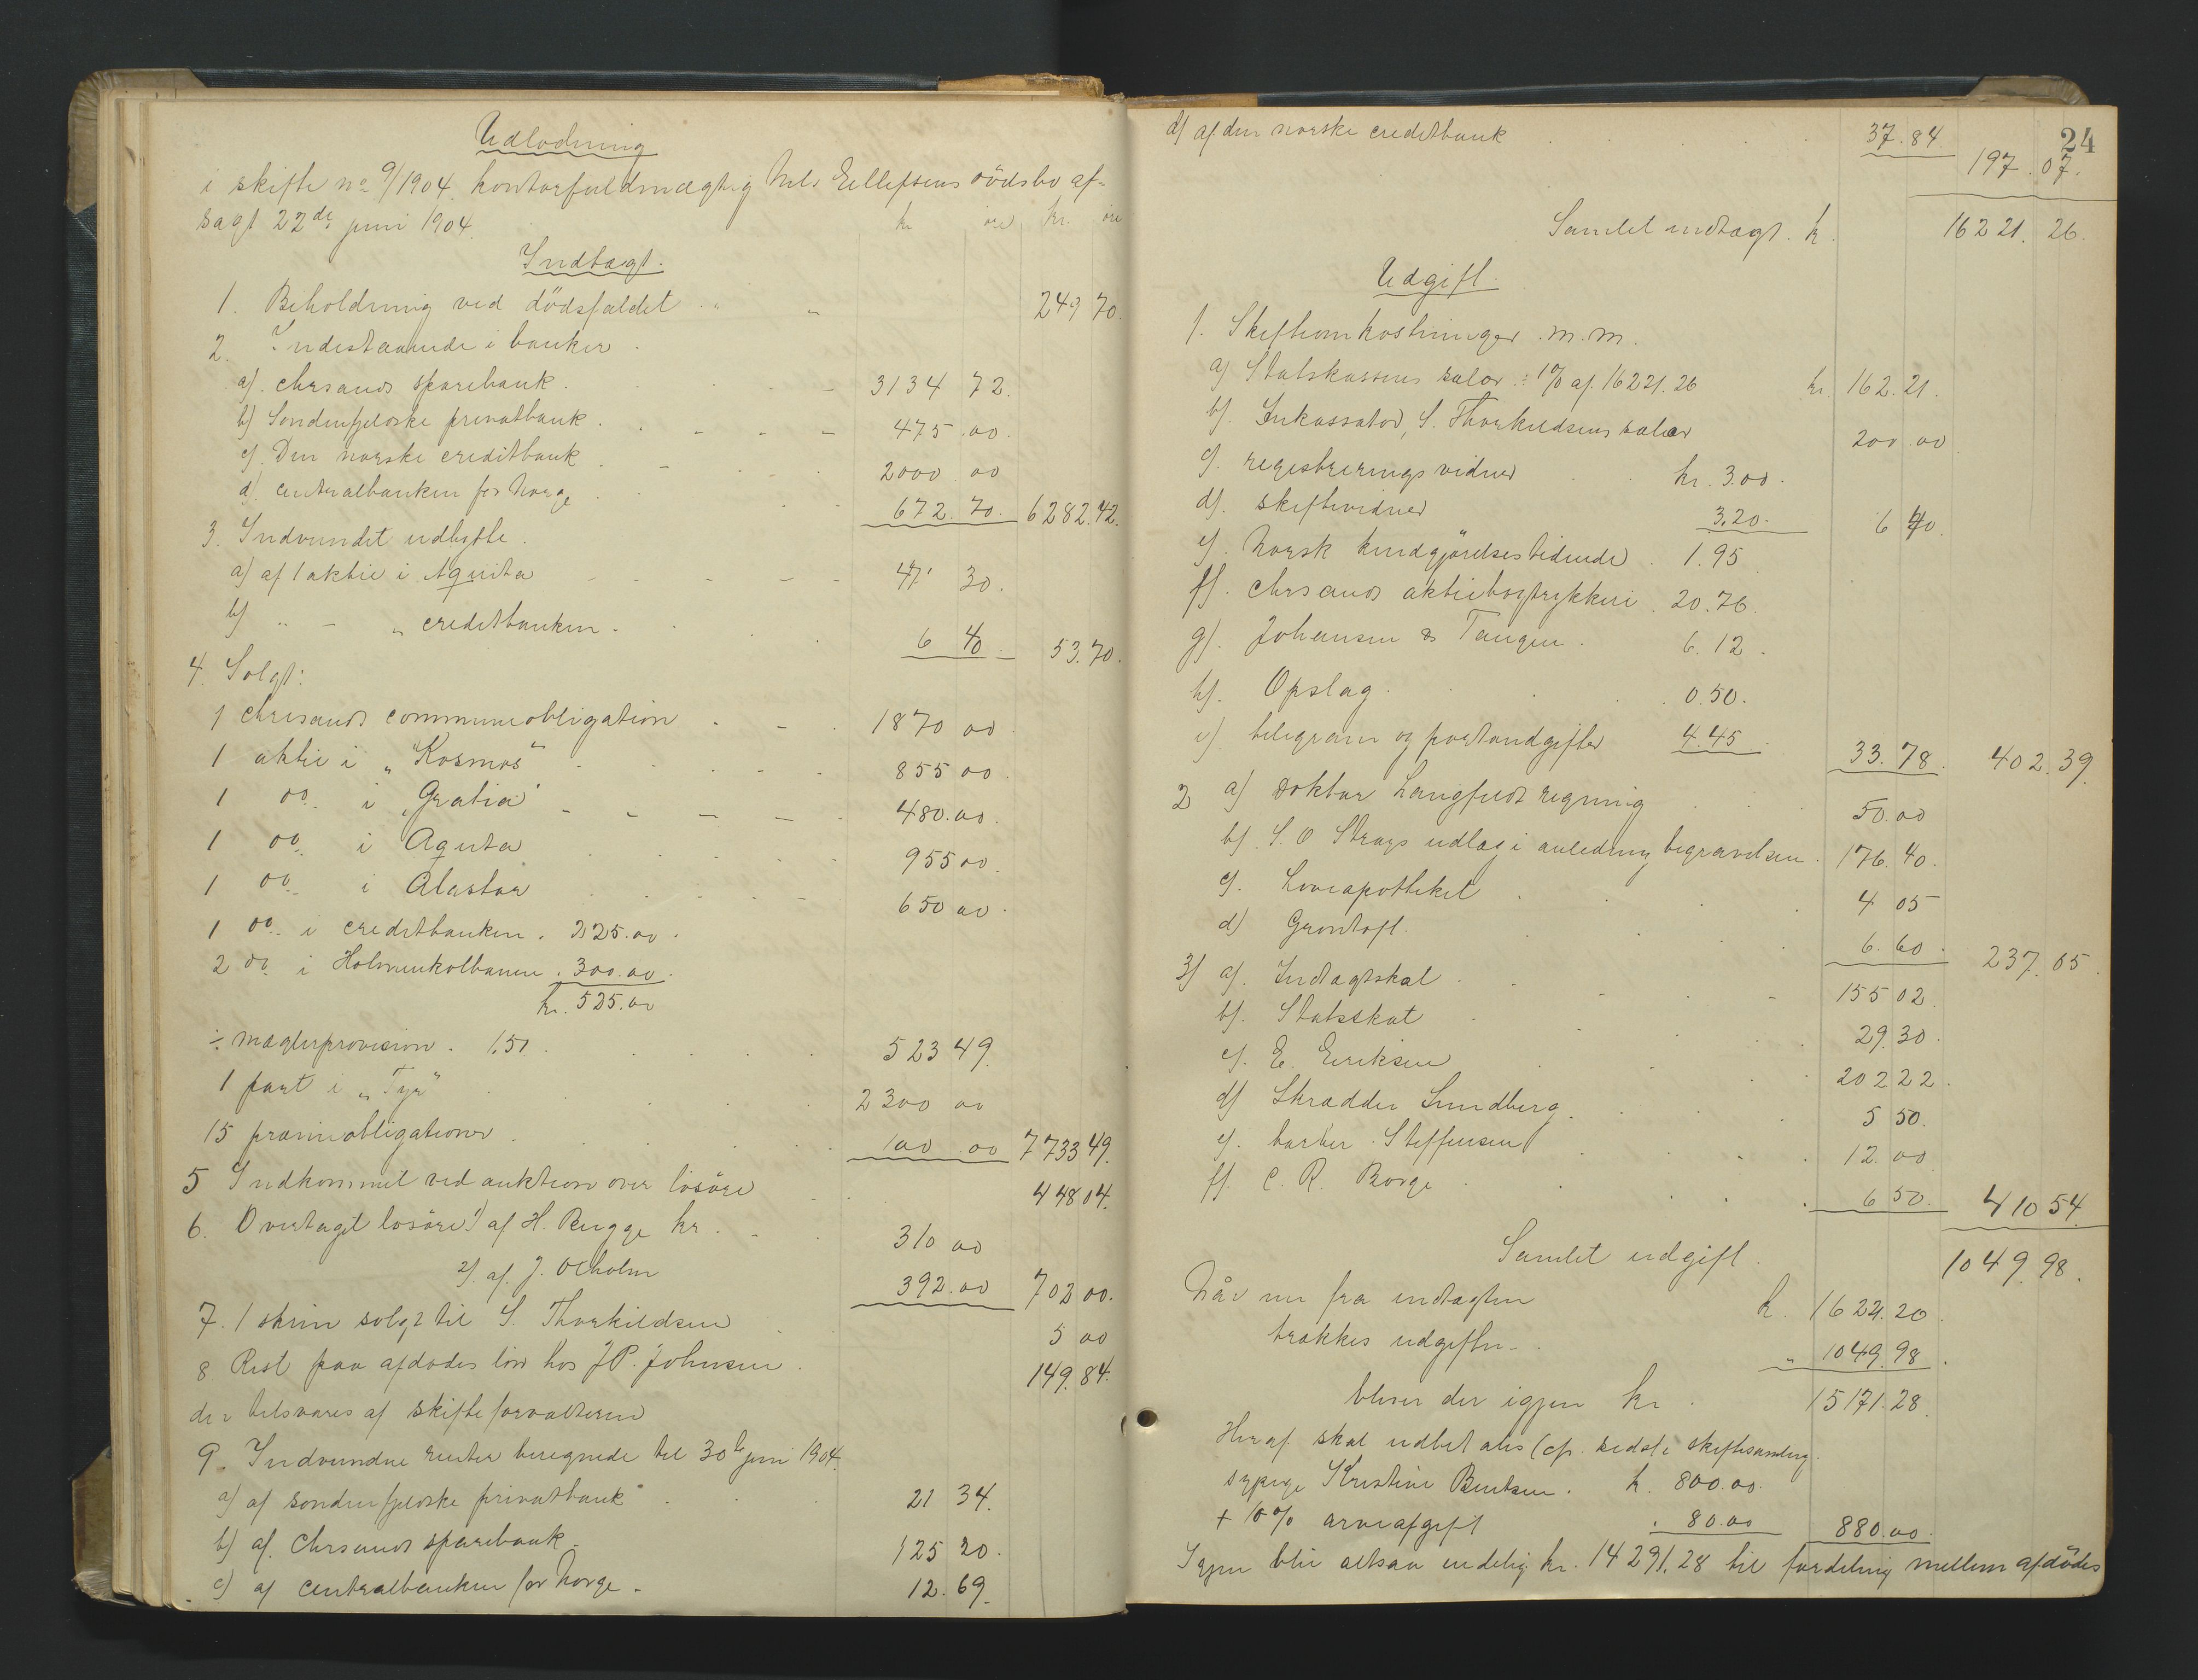 Udlodning
i skifte no 9/1904 kontorfuldmægtig Nels Eellefsens dödsbo af-
sagt 22de juni 1904.
kr öre kr. öre
Indtægt.
1. Beholdning ved dödsfaldet " " 249 70.
2. Indestaaende i banker.
a). Chrsands sparebank. 3134 72.
b) Söndenfjeldske privatbank. 475.00.
c). Den norske creditbank 2000.00
d). Centralbanken for Norge 672.70. 6282.42.
3. Indvundet udbytte.
a) af 1 aktie i Aquita 47 30.
b) " - " creditbanken. 6 40. 53.70.
4. Solgt:
1 Chrisands communeobligation 1870 00
1 aktie i „Kosmos" 855 00.
1 do. i „Gratia" 480.00.
1 do. i Aquita 955 00.
1 do. i Alastor 650 00.
1 do. i creditbanken. 225.00.
2 do. i Holmenkolbanen. 300.00.
kr. 525.00
÷ mæglerprovision. 1.51. 523 49.
1 part i „Tyr" 2300 00
15 præmieobligationer 100.00 7733 49.
5 Indkommet ved auktion over lösöre 448 04.
6. Overtaget lösöre 1) af H. Rugge kr. 310 00
2). af J. Ocholm 392.00 702 00.
7. 1 skrin solgt til S. Thorkildsen 5 00
8 Rest paa afdödes lön hos J P. Johnsen 149.84.
der tilsvares af skifteforvalteren
9. Indvundne renter beregnede til 30te juni 1904.
a) af söndenfjeldske privatbank 21 34.
b) af. Chrsands sparebank. 125 20.
c) af centralbanken for Norge. 12.69.
24
d) af den norske creditbank 37.84 197.07.
Samlet indtægt. kr. 16221.26.
Udgift.
1. Skifteomkostninger. m.m.
a) Statskassens salær ÷ 1% af. 16221.26 kr. 162.21.
b). Inkassator, S. Thorkildsens salær 200.00
c). registreringsvidner kr. 3.00.
d). skiftevidner 3.20. 6 20.
e). Norsk kundgjörelsestidende. 1.95
f). Chrsands aktiebogtrykkeri. 20.76.
g). Johansen & Tangen. 6.12.
h). Opslag. 0.50.
i). telegram og postudgifter 4.45. 33.78. 402.39.
2 a) doktor Langfeldts regning 50.00
b). S. O Strays udlæg i anledning begravelsen. 176.40.
c). Löveapotheket 4 05
d) Grontoft. 6.60. 237.05.
3) a). Indtægtskat 155 02.
b). Statsskat 29.30
c). E. Eriksen 202 22.
d) Skrædder Lundberg. 5 50.
e). barber Steffensen 12.00
f). C. R. Borge 6 50. 410 54.
Samlet udgift. 1049.98.
Når nu fra indtægten kr. 16221.20
trækkes udgiften " 1049.98.
bliver der igjen kr. 15171.28.
Heraf skal udbetales (cfr. sidste skiftesamling.
sypige Kristine Bentsen. kr. 800.00.
+ 10% arveafgift. 80.00 880.00.
Igjen blir altsaa endelig kr. 14291.28 til fordeling mellem afdödes